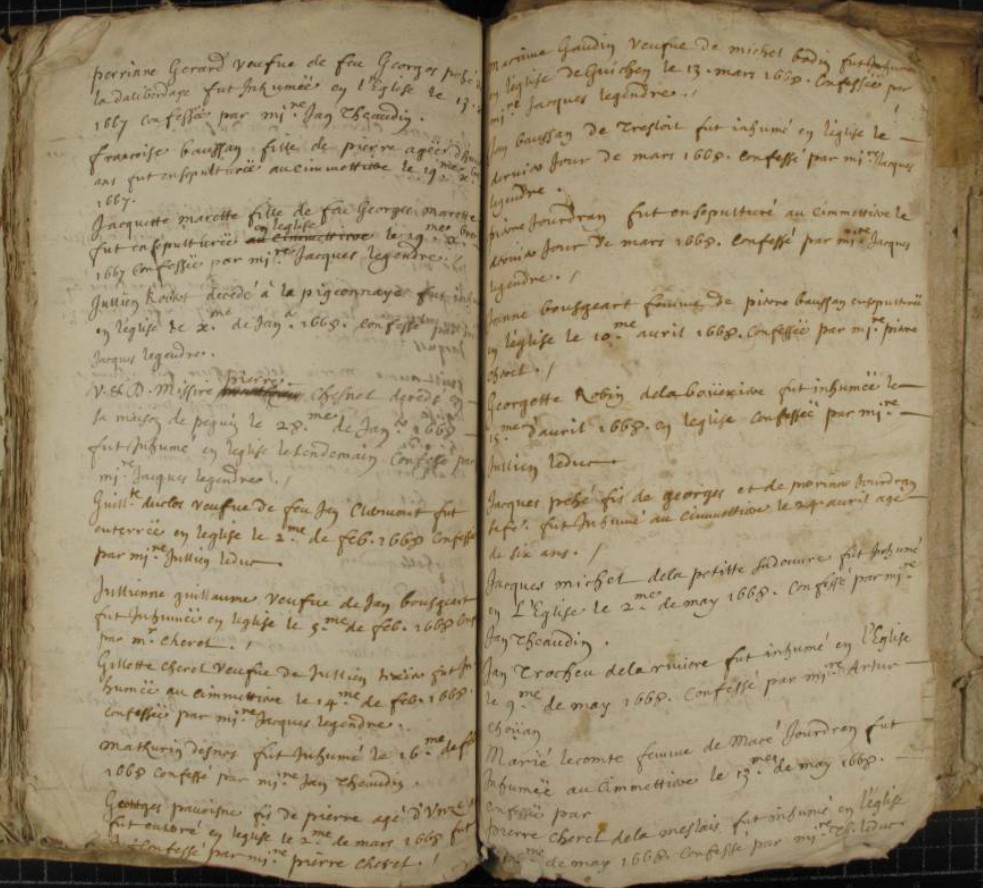 perrinne Gerard veufve de feu Georges
la daliberdaye fut Inhumée en l'Eglise le 13.
1667 Confessée par mi.re Jan Theaudin.
francoise baussan fille de pierre agée d'
ans fut ensepulturée au Cimmettiere le 19.me x.
1667.
Jacquette marette fille de feu Georges marette
fut ensepulturée en leglise le 19.me
1667 Confessée par mi.re Jacques legendre.
Jullien decedé à la pigeonnaye fut
en leglise le x.me de Jan.r 1668. Confessé par
Jacques legendre.
V. & D. Missire pierre Chesnel decedé en
sa maison de le 28.me de Jan.r 1668
fut Inhumé en leglise le lendemain Confessé par
mi.re Jacques legendre.
Guill.e duclos veufve de feu Jan Clermont fut
enterrée en leglise le 2.me de feb. 1668 Confessée
par mi.re Jullien leduc
Jullienne guillaume veufve de Jan bousgeart
fut Inhumée en leglise le 5.me de feb. 1668
par m.r Cherel.
Gillette Cherel veufve de Jullien fut In
humée au Cimmettiere le 14.me de feb. 1668.
Confessée par mi.re Jacques legendre.
Mathurin desnos fut Inhumé le 16.me de feb
1668 Confessé par mi.re Jan Theaudin.
Georges fis de pierre agé d'
fut enterré en leglise le 2.me de mars 1668 fut
Confessé par mi.re pierre Cherel.
Gaudin veufve de michel bodin fut Inhumée
en leglise de Guichen le 13. mars 1668. Confessée par
mi.re Jacques legendre.
Jan baussan de Tresloit fut inhumé en leglise le
dernier Jour de mars 1668. Confessé par mi.re Jacques
legendre.
pierre Jourdran fut ensepulturé au Cimmettiere le
dernier Jour de mars 1668. Confessé par mi.re Jacques
legendre.
Janne bousgeart femme de pierre baussan ensepulturée
en leglise le 10.me avril 1668. Confessée par mi.re pierre
Cherel.
Georgette Robin dela boüexiere fut inhumée le
15.me d'avril 1668. en leglise Confessée par mi.re
Jullien leduc
Jacques fis de georges et de perrine Jourdran
fut Inhumé au Cimmettiere le avril agé
de six ans.
Jacques michel dela petitte fut Inhumé
en L'Eglise le 2.me de may 1668. Confessé par mi.re
Jan Theaudin.
Jan Trocheu dela riviere fut inhumé en l'Eglise
le 9.me de may 1668. Confessé par mi.re Artur
Choüan
Marie lecomte femme de Macé Jourdran fut
Inhumée au Cimmettiere le 13.me de may 1668.
Confessée par
Pierre Cherel dela meslais fut inhumé en l'eglise
de may 1668. Confessé par mi.re leduc